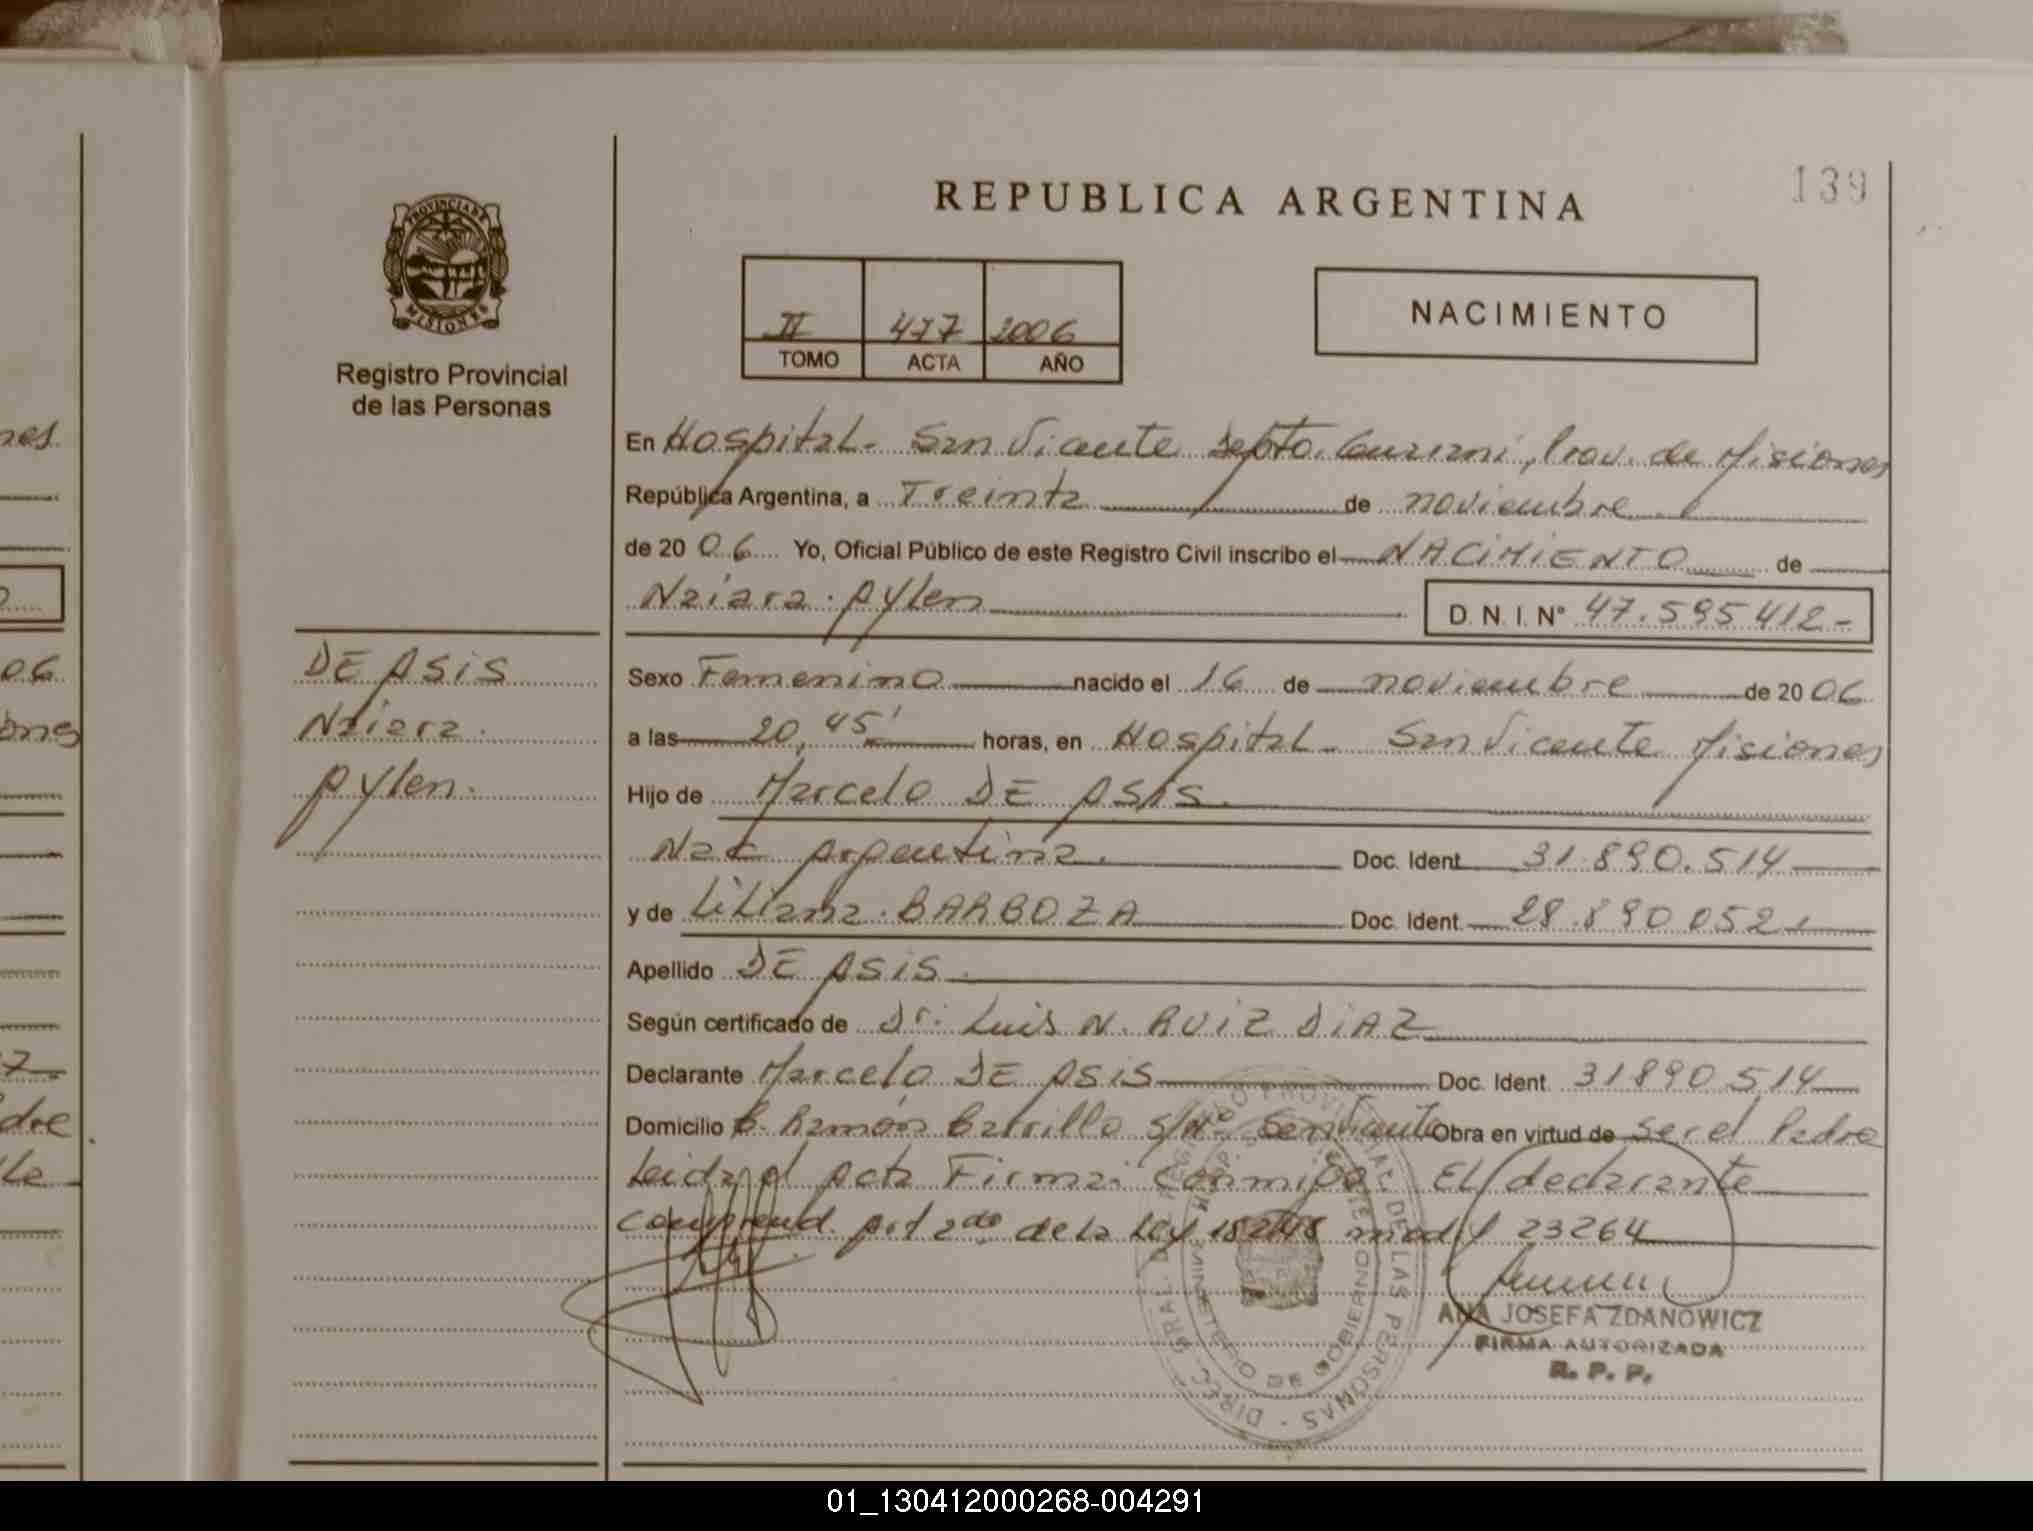 139
REPUBLICA ARGENTINA
PROVINCIA DE
MISIONES
Registro Provincial
de las Personas
II 477 2006
TOMO ACTA AÑO
NACIMIENTO
En Hospital - San Vicente Depto. Guarani, Prov. de Misiones
República Argentina, a Treinta de noviembre
de 20 06 Yo, Oficial Público de este Registro Civil inscribo el NACIMIENTO de
Naiara Aylen D. N. I. Nº 47.595412-
DE ASIS
Naiara
Aylen.
Sexo Femenino nacido el 16 de noviembre de 20 06
a las 20,45' horas, en Hospital - San Vicente Misiones
Hijo de Marcelo DE ASIS.
Nac Argentina. Doc. Ident. 31.890.514
y de Liliana BARBOZA Doc. Ident. 28.890 052
Apellido DE ASIS.
Según certificado de Dr. Luis N. RUIZ DIAZ
Declarante Marcelo DE ASIS Doc. Ident. 31890514
Domicilio B. Ramón Carrillo S/Nº San Vicente Obra en virtud de ser el Padre
Leida el Acta Firma Conmigo. El declarante
comprend. Art 2do de la Ley 18248 modif 23264
ANA JOSEFA ZDANOWICZ
FIRMA AUTORIZADA
R. P. P.
MINISTERIO DE GOBIERNO
01_130412000268-004291